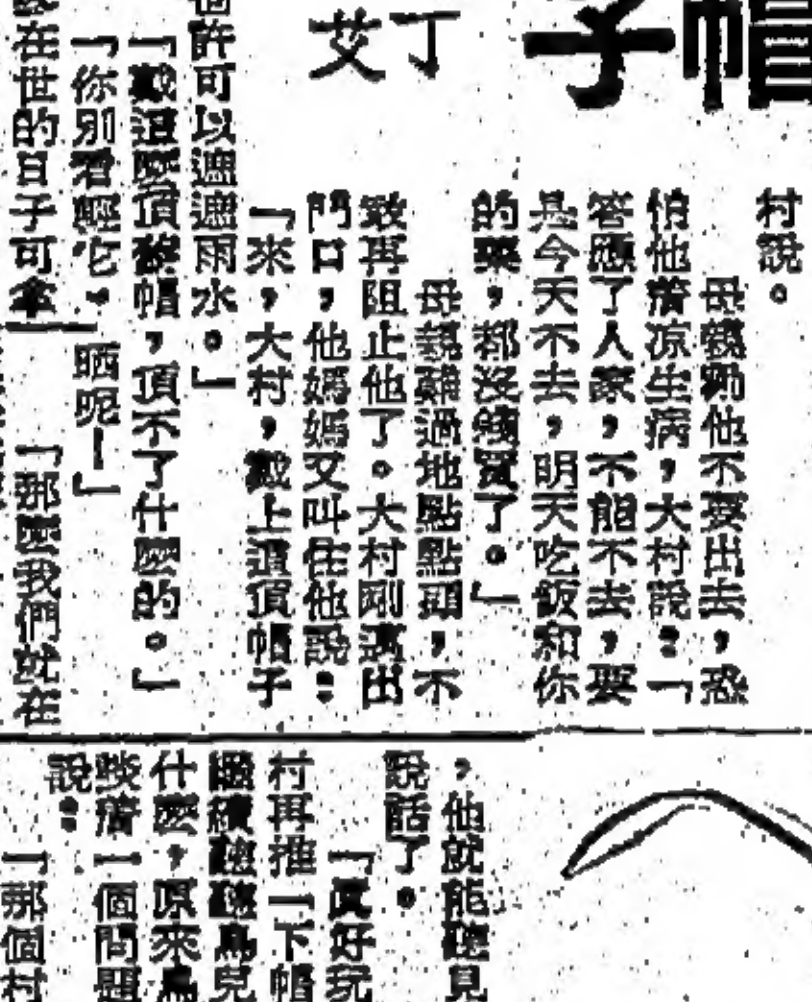 帽子
丁艾
村說。
母親勸他不要出去，恐
怕他着凉生病，大村說：「
答應了人家，不能不去，要
是今天不去，明天吃飯和你
的藥，都沒錢買了。」
母親難過地點點頭，不
敢再阻止他了。大村剛邁出
門口，他媽媽又叫住他說：
「來，大村，戴上這頂帽子
許可以遮遮雨水。」
「戴這麼頂破帽，頂不了什麼的。」
「你別看輕它，
在世的日子可拿
晒呢！」
「那麼我們就在
，他就能聽見
說話了。
「真好玩
村再推一下帽
繼續聽聽鳥兒
什麼，原來鳥
談着一個問題
說：
「那個村